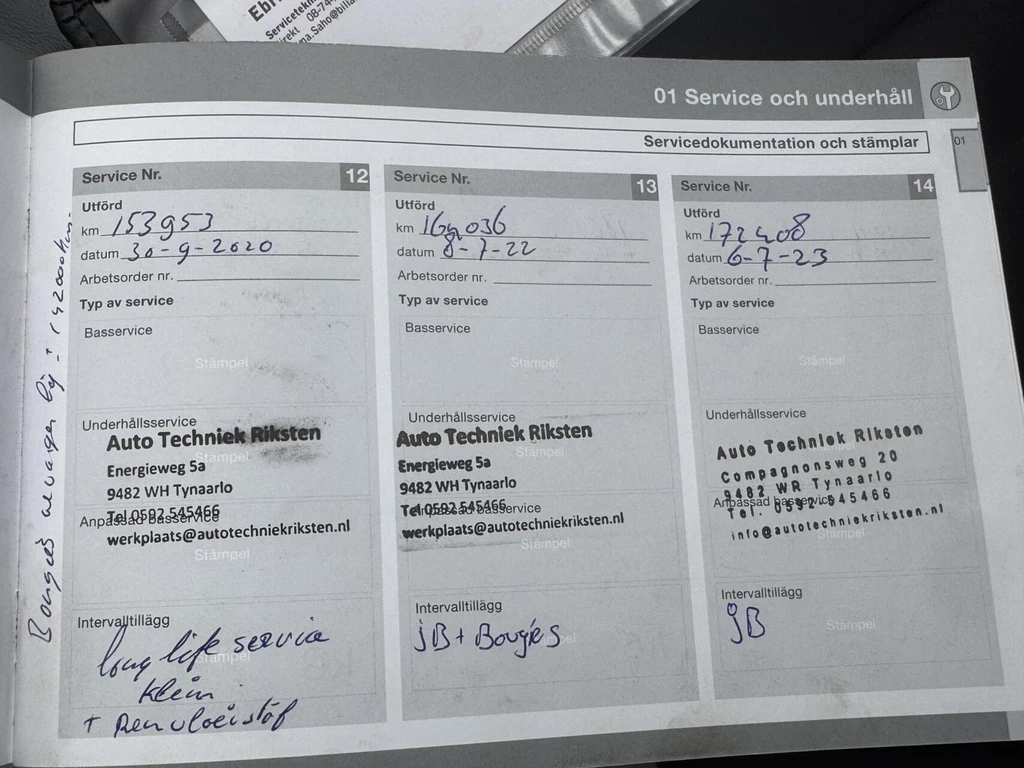 Servicetekn
direkt 08-74
na.Saho@bilia
01 Service och underhåll
01
Servicedokumentation och stämplar
Service Nr. 12
Utförd
km 153953
datum 30-9-2020
Arbetsorder nr.
Typ av service
Basservice
Stämpel
Underhållsservice
Auto Techniek Riksten
Stämpel
Energieweg 5a
9482 WH Tynaarlo
Tel 0592 545466
Anpassad basservice
werkplaats@autotechniekriksten.nl
Stämpel
Intervalltillägg
long life service
Stämpel
klein
+ Remvloeistof
Service Nr. 13
Utförd
km 164036
datum 8-7-22
Arbetsorder nr.
Typ av service
Basservice
Stämpel
Underhållsservice
Auto Techniek Riksten
Stämpel
Energieweg 5a
9482 WH Tynaarlo
Tel 0592 545466
Anpassad basservice
werkplaats@autotechniekriksten.nl
Stämpel
Intervalltillägg
jB + Bougies
Stämpel
Service Nr. 14
Utförd
km 172408
datum 6-7-23
Arbetsorder nr.
Typ av service
Basservice
Stämpel
Underhållsservice
Auto Techniek Riksten
Compagnonsweg 20
9482 WR Tynaarlo
Anpassad basservice
Tel. 0592-545466
info@autotechniekriksten.nl
Stämpel
Intervalltillägg
jB
Stämpel
Bougies vervangen bij ±